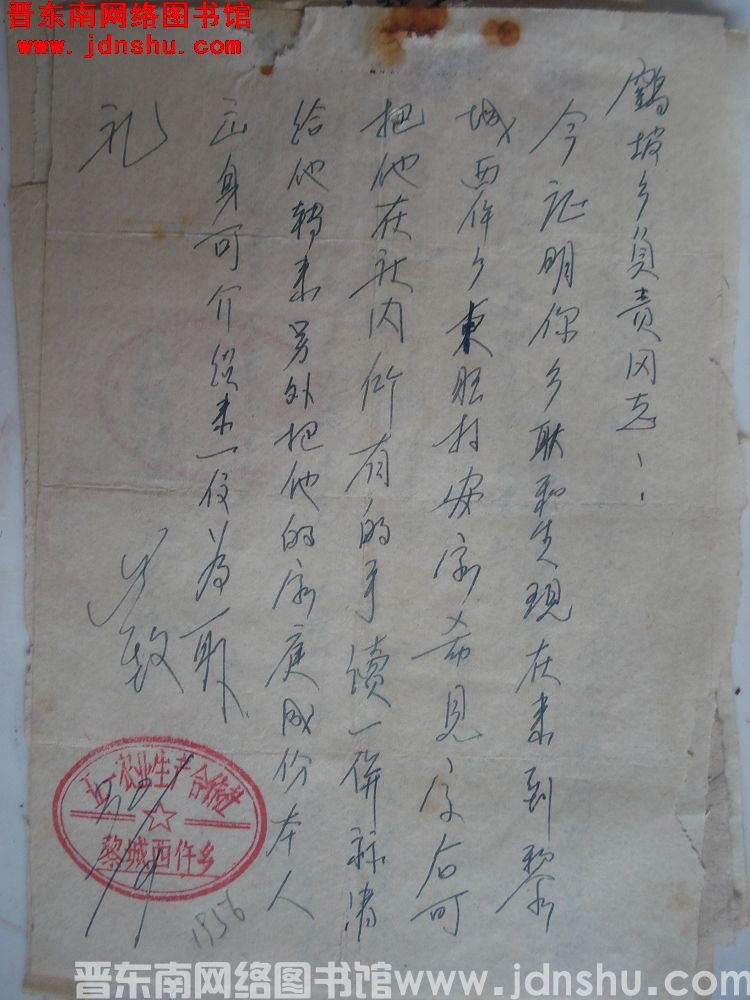 晋东南网络图书馆
www.jdnshu.com
鶴坡乡負责同志：
今证明你乡耿和生现在来到黎
城西仵乡東旺村安家希見字后可
把他在社内所有的手續一併
给他轉来另外把他的家庭成份本人
出身可介绍来一份為
此致
礼
五一农业生产合作社
黎城西仵乡
1956
晋东南网络图书馆www.jdnshu.com